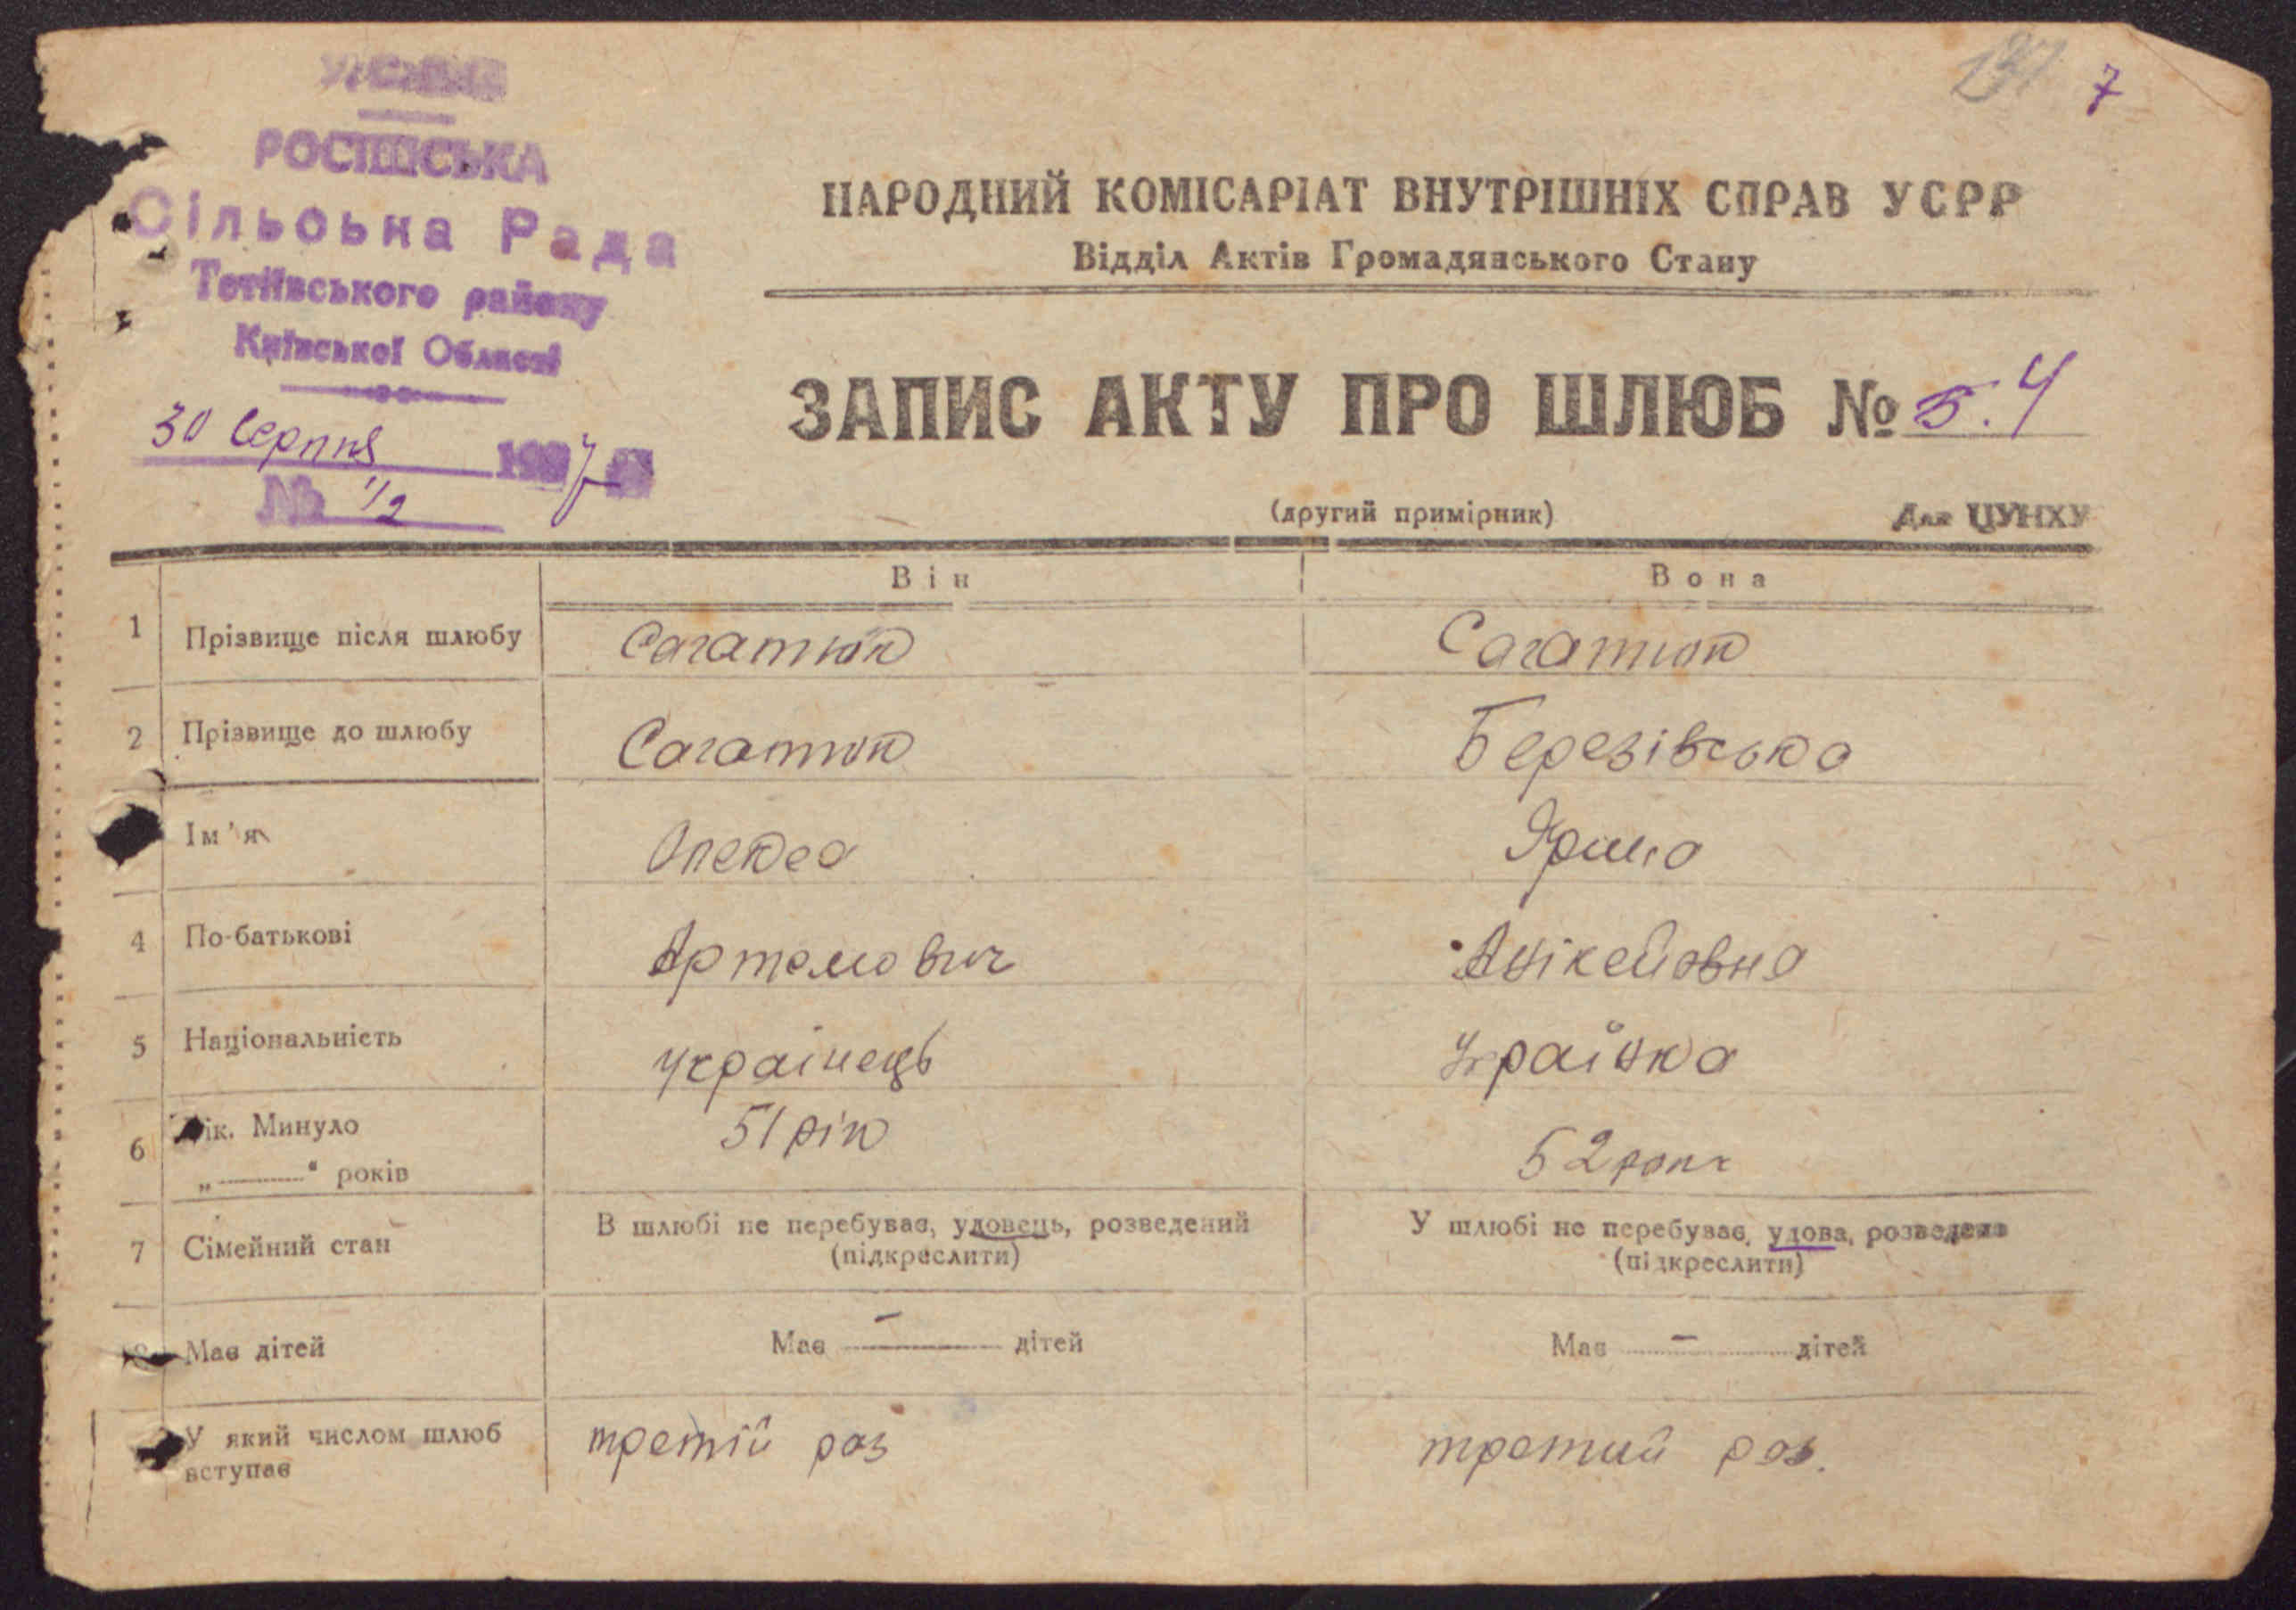 РОСІШСЬКА
Сільська Рада
Тетіївського району
Київської Области
30 серпня 1937
№ 1/2
7
НАРОДНИЙ КОМІСАРІАТ ВНУТРІШНІХ СПРАВ УСРР
Відділ Актів Громадянського Стану
ЗАПИС АКТУ ПРО ШЛЮБ № 5.4
(другий примірник) Для ЦУНХУ
Він Вона
1 Прізвище після шлюбу Сагатюк Сагатюк
2 Прізвище до шлюбу Сагатюк Березівська
Ім'я Олекса Ярина
4 По-батькові Артемович Анікейовна
5 Національність українець Українка
6 Вік. Минуло 51 рік 52 роки
„ “ років
7 Сімейний стан В шлюбі не перебував, удовець, розведений У шлюбі не перебуває, удова, розведена
(підкреслити) (підкреслити)
8 Має дітей Має – дітей Має – дітей
У який числом шлюб третій раз третий раз.
вступає